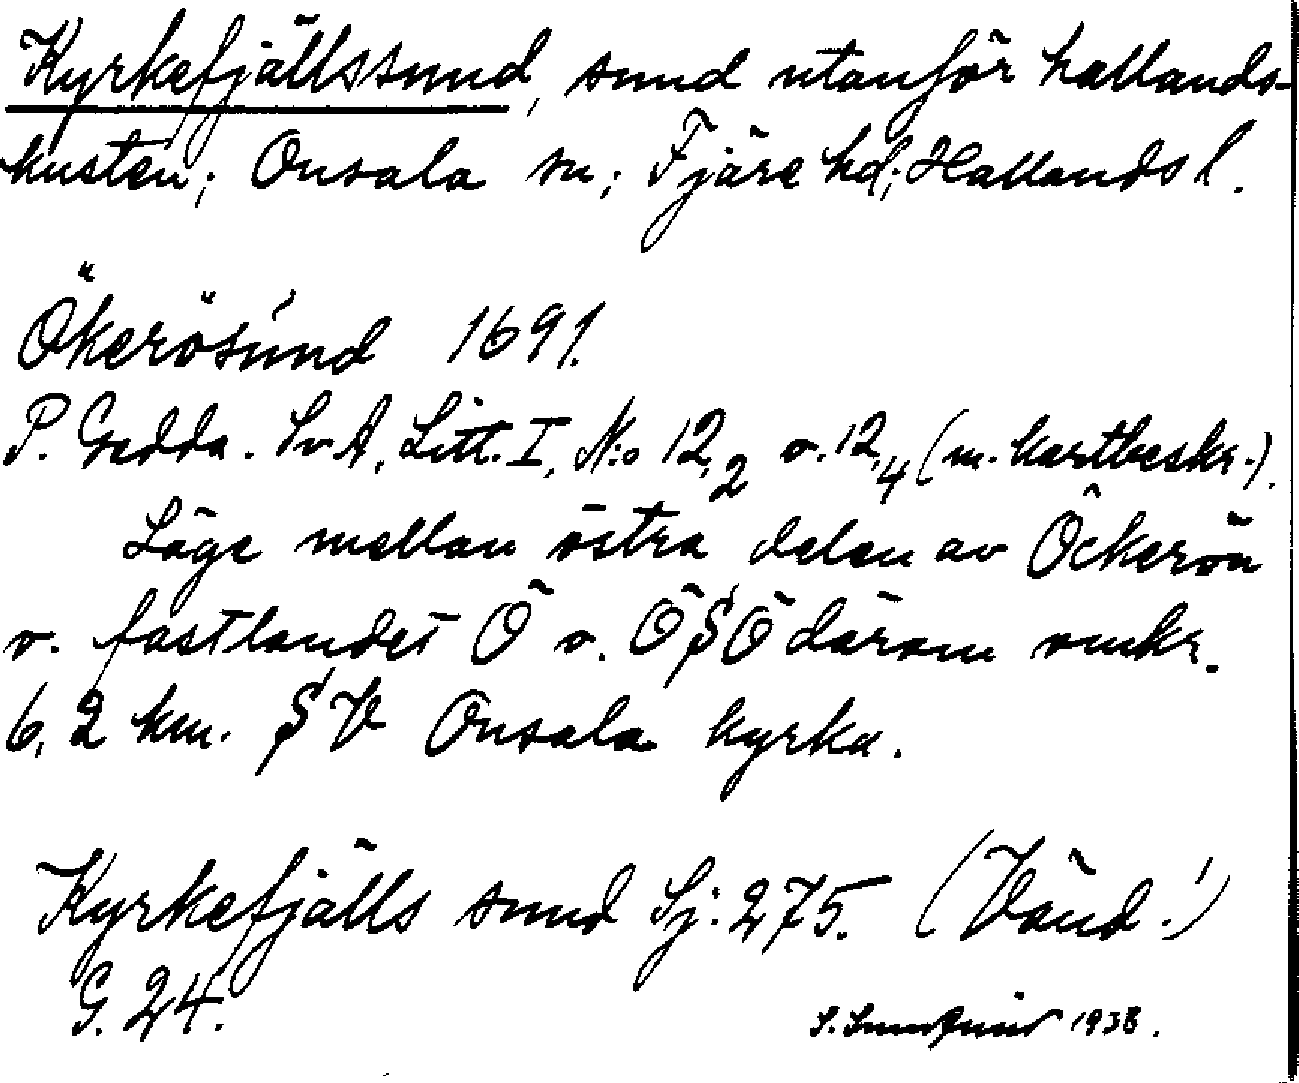 Kyrkefjällssund, sund utanför hallands-
kusten; Onsala sn; Fjäre hd; Hallands l.
Ökerösund 1691.
P. Gedda. SvA, Litt. I, N:o 12,2 o. 12,4 (m. kartbeskr.).
Läge mellan östra delen av Öckerön
o. fastlandet Ö o. ÖSÖ därom omkr.
6,2 km. SV Onsala kyrka.
Kyrkefjälls sund Sj: 275. (Vänd!)
G. 24.
S. 1938.